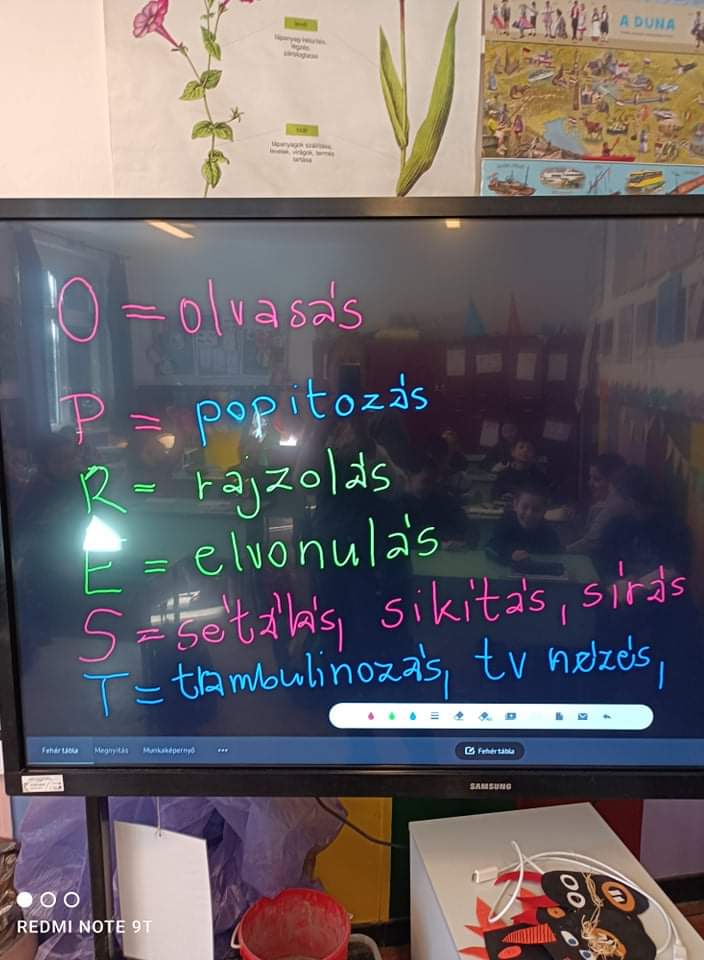 levél
tápanyag-felvétel,
légzés,
párologtatás
szár
tápanyagok szállítása,
levelek, virágok, termés
tartása
A DUNA
O = olvasás
P = popitozás
R = rajzolás
E = elvonulás
S = sétálás, sikítás, sírás
T = trambulinozás, tv nézés,
Fehér tábla
Megnyitás
Munkaképernyő
•••
Fehér tábla
SAMSUNG
REDMI NOTE 9T